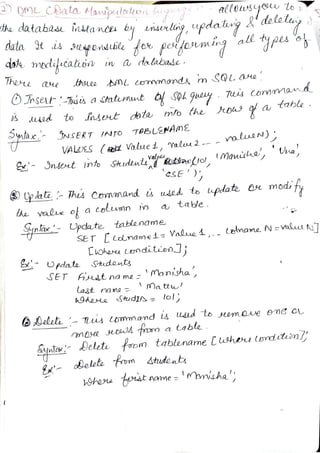 2) DML (Data Manipulation language): allows you to
the database instances by inserting, updating & deleting
data. It is responsible for performing all types of
data modification in a database.
There are three DML commands in SQL are:
① Insert :- This is a statement of SQL query. This command
is used to insert data into the row of a table.
Syntax :- INSERT INTO TABLENAME
VALUES ( Value1, Value2 -- valueN);
Ex:- Insert into Students values (101, 'Manisha', 'Una',
'CSE');
② Update :- This Command is used to update or modify
the value of a column in a table.
Syntax:- Update tablename
SET [colname1 = Value1, -- colname N = value N]
[where condition];
Ex:- Update Students
SET First name = 'Manisha',
last name = 'Mattu'
where StudIs = 101;
③ Delete :- This command is used to remove one or
more rows from a table.
Syntax:- Delete from tablename [where condition];
Ex:- Delete from students
where first name = 'Manisha';